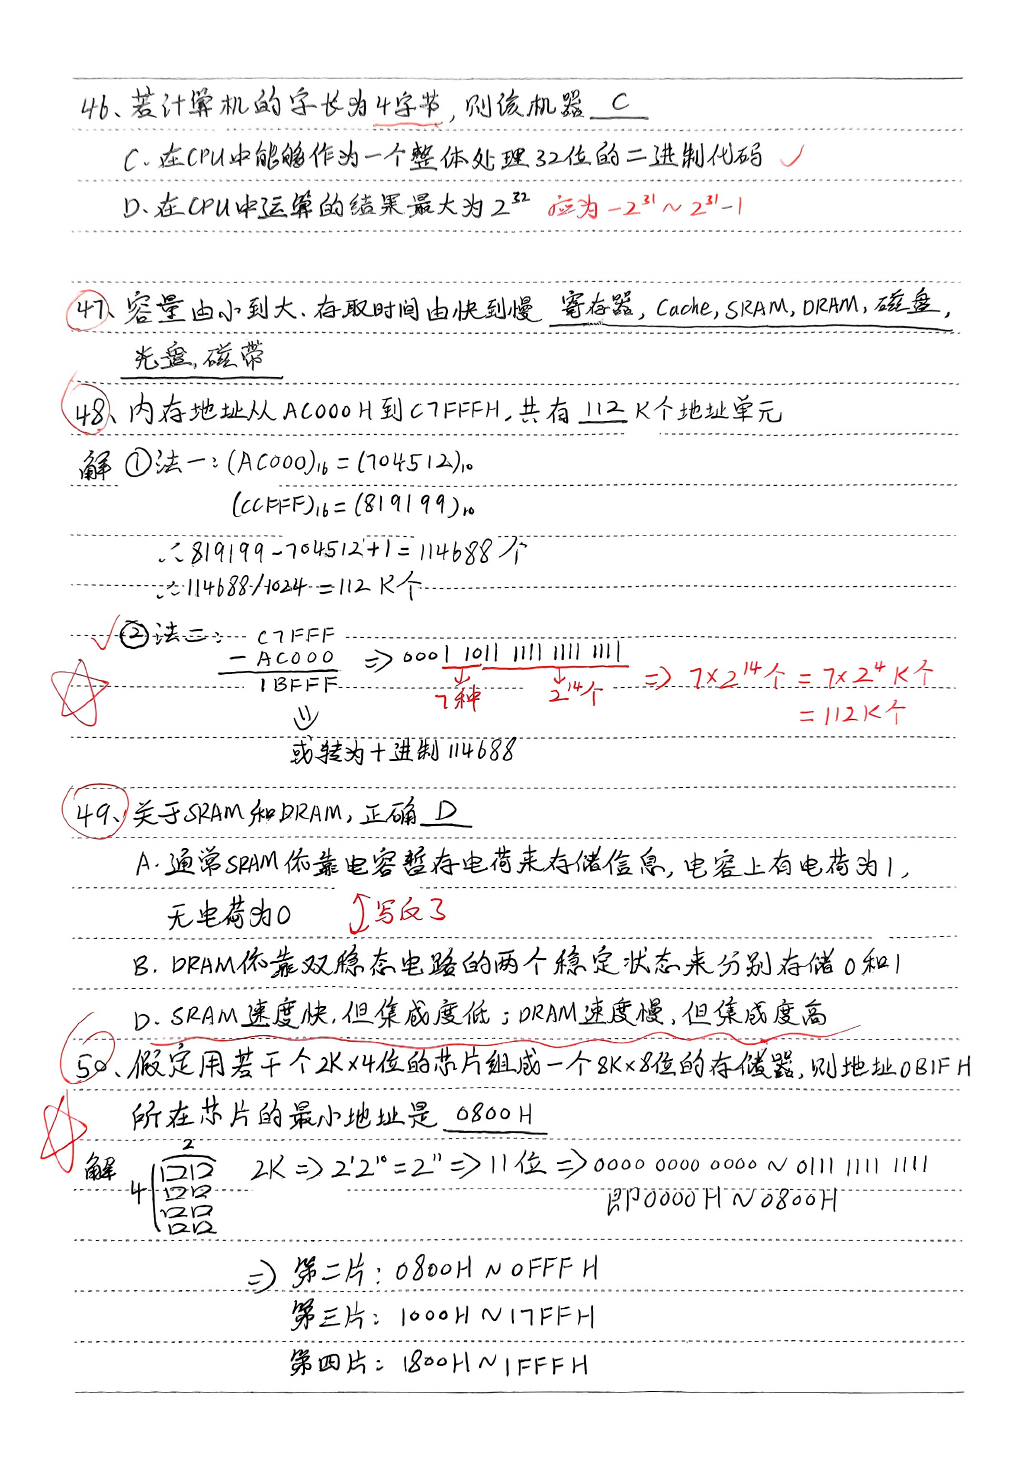 46、若计算机的字长为4字节,则该机器 C
C. 在CPU中能够作为一个整体处理32位的二进制代码 ✓
D. 在CPU中运算的结果最大为2³² 应为 -2³¹ ~ 2³¹-1
47、容量由小到大、存取时间由快到慢 寄存器, Cache, SRAM, DRAM, 磁盘,
光盘, 磁带
48、内存地址从AC000H到C7FFFH,共有 112 K个地址单元
解 ①法一: (AC000)₁₆ = (704512)₁₀
(CCFFF)₁₆ = (819199)₁₀
∴ 819199-704512+1 = 114688个
∴ 114688/1024 = 112 K个
✓ ②法二: C7FFF
- AC000 => 0001 1011 1111 1111 1111
1BFFF 7种 2¹⁴个 => 7×2¹⁴个 = 7×2⁴ K个
= 112K个
或转为十进制114688
49、关于SRAM和DRAM, 正确 D
A. 通常SRAM依靠电容暂存电荷来存储信息, 电容上有电荷为1,
无电荷为0 ↕写反了
B. DRAM依靠双稳态电路的两个稳定状态来分别存储0和1
D. SRAM速度快, 但集成度低; DRAM速度慢, 但集成度高
50、假定用若干个2K×4位的芯片组成一个8K×8位的存储器, 则地址0B1FH
所在芯片的最小地址是 0800H
解 2
4 2K => 2¹2¹⁰ = 2¹¹ => 11位 => 0000 0000 0000 ~ 0111 1111 1111
即0000H ~ 0800H
=> 第二片: 0800H ~ 0FFFH
第三片: 1000H ~ 17FFH
第四片: 1800H ~ 1FFFH